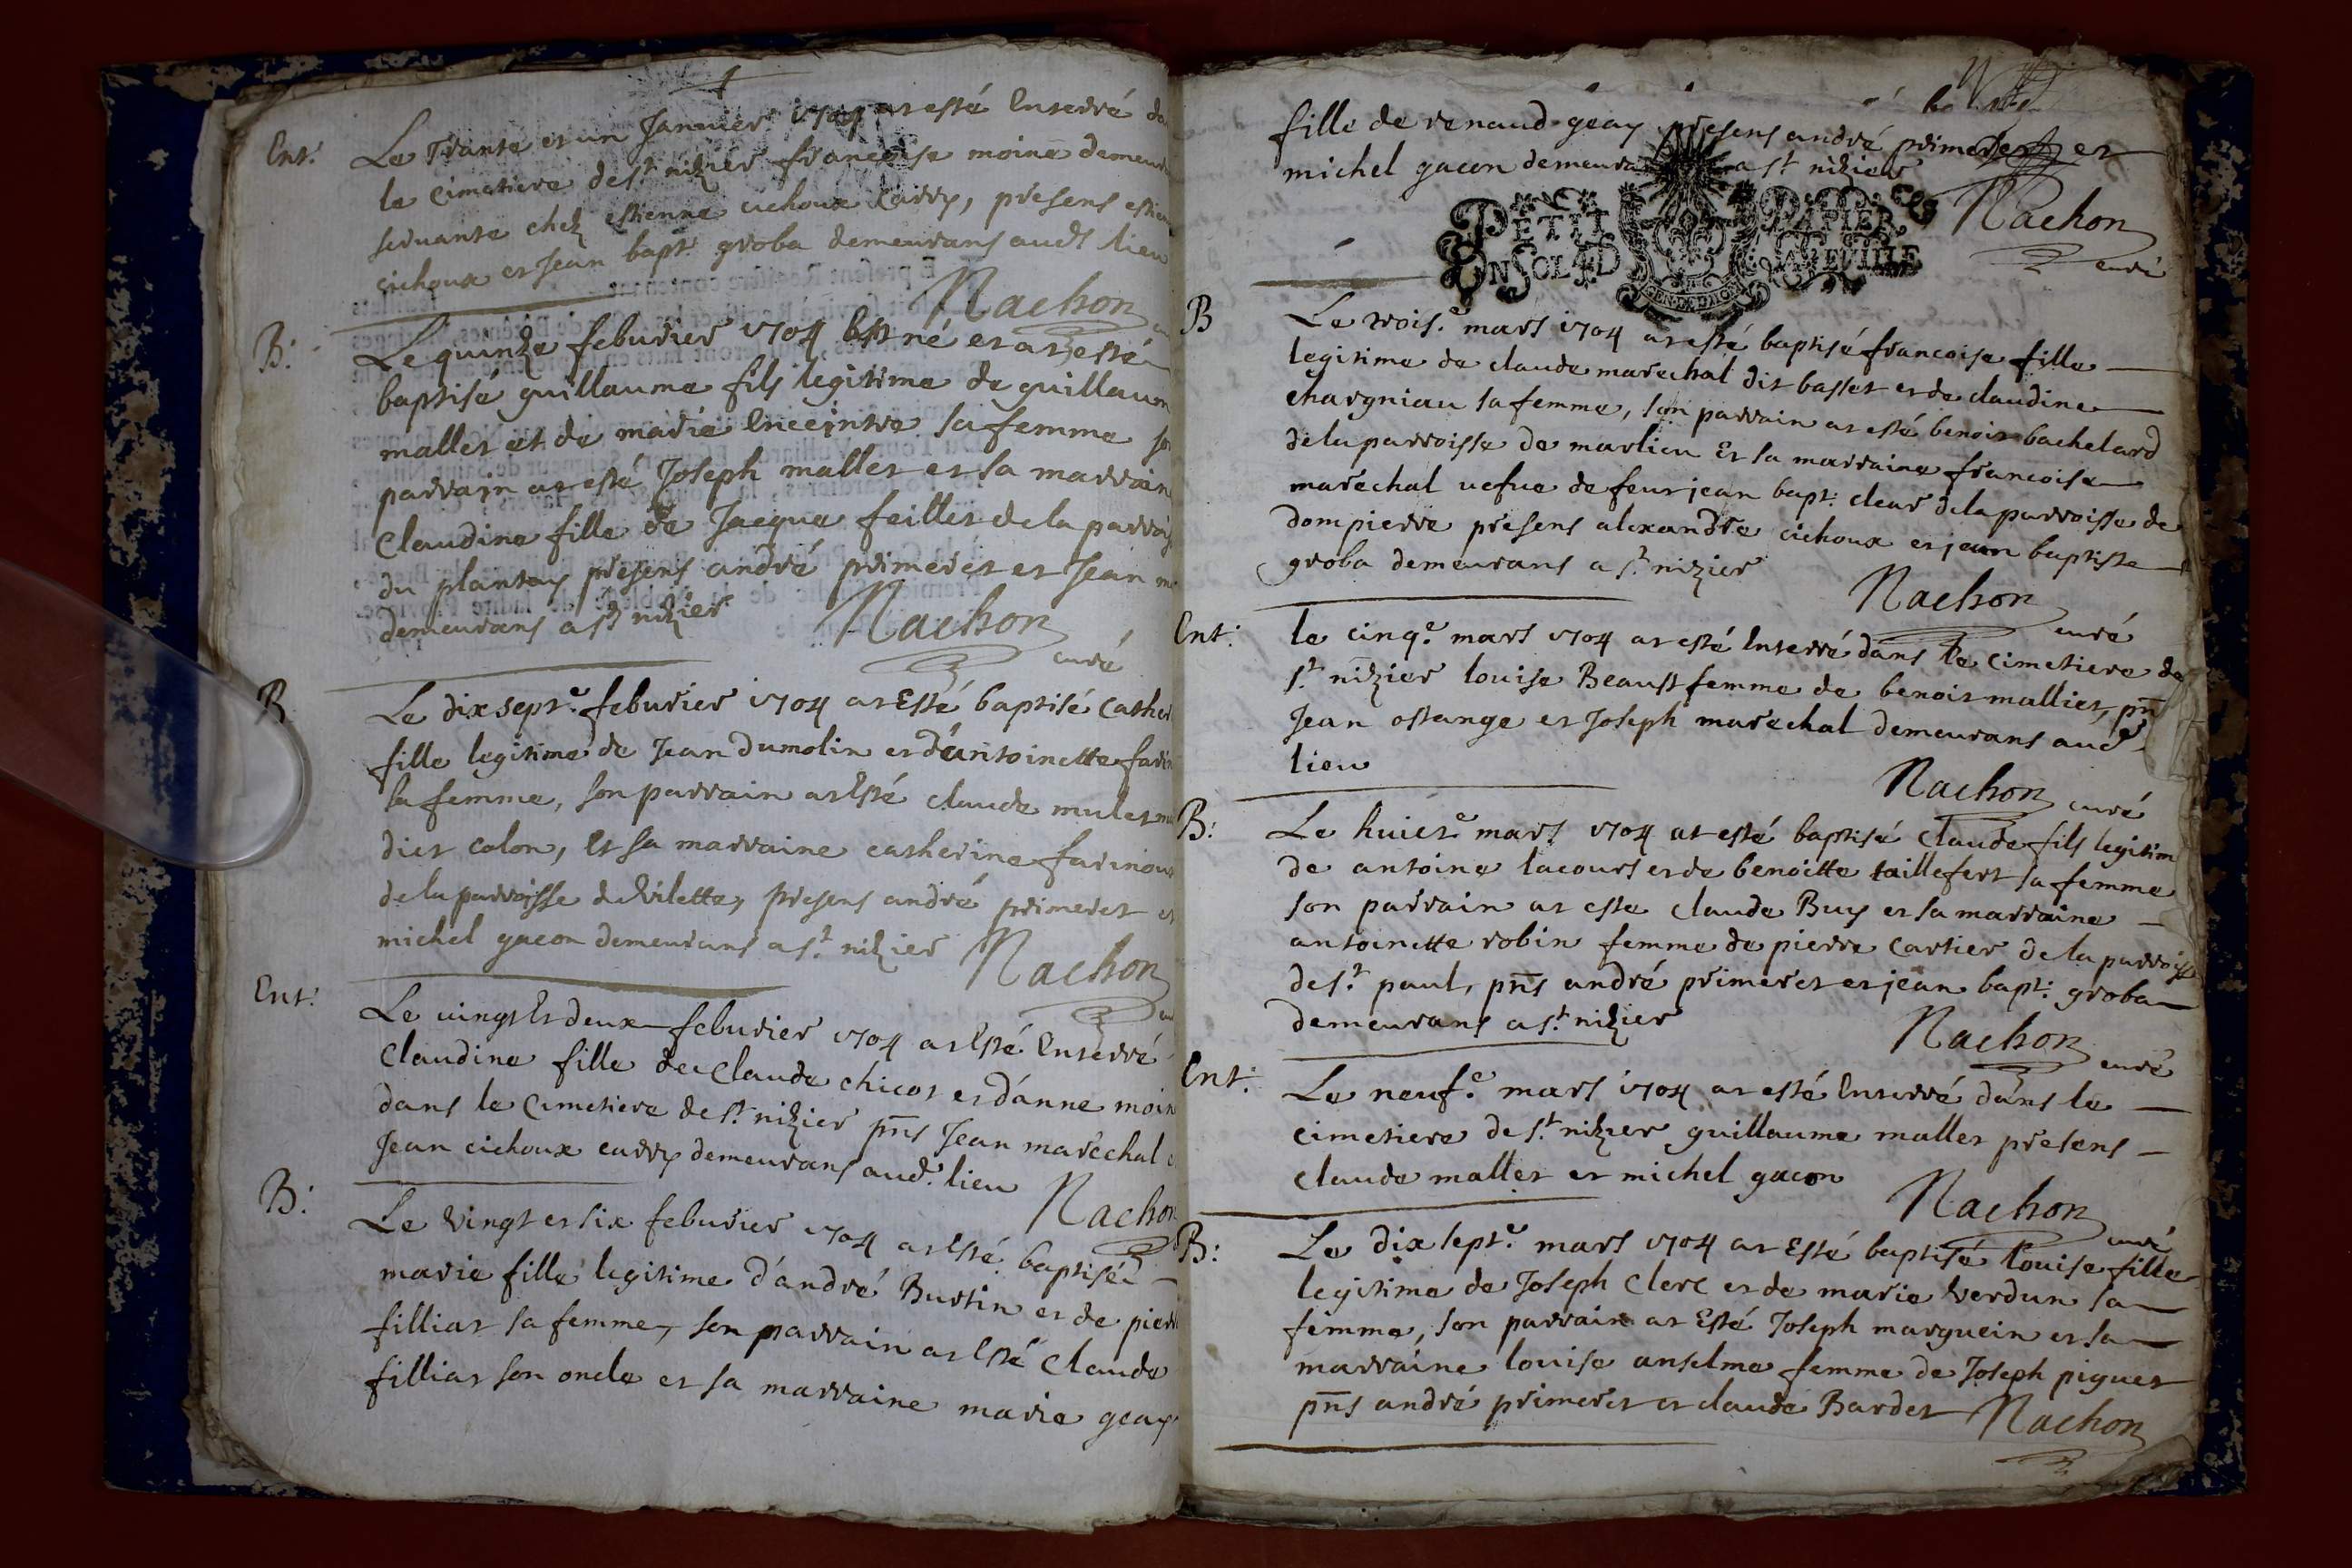 Ent:
Le Trante et un Janvier 1704 at esté Enterré da
le cimetiere de st nizier francoise moine demeura
servante chez estienne cichoux Carry, presens estien
cichoux et Jean bapt: groba demeurans audt lieu
Nachon
B:
Le quinze feburier 1704 Est né et at esté
baptisé guillaume fils legitime de guillaum
mallet et de marie Enceintre sa femme so
parrain at esté Joseph mallet et sa marrain
Claudine fille de Jacque feillet de la parrois
du plantay presens andré primeret et Jean
demeurans a st nizier
Nachon
curé
B
Le dix septe feburier 1704 at Esté baptisé Cather
fille legitime de Jean Dumolin et d'antoinette farin
sa femme, son parrain at Esté claude mulet
diet colon, Et sa marraine catherine farinoux
de la parroisse de vilette, presens andré primeret et
michel gacon demeurans a st nizier
Nachon
Ent:
Le vingt Et deux feburier 1704 at Esté Enterré
Claudine fille de Claude chicot et d'anne moin
dans le Cimetiere de st nizier pns Jean marechal
Jean cichoux carry demeurans aud. lieu
Nachon
B:
Le vingt et six feburier 1704 at Esté baptisée
marie fille legitime d'andré Burtin et de pierr
filliat sa femme, son parrain at Esté Claude
filliat son oncle et sa marraine marie geay
fille de renaud geay presens andré primeret et
michel gacon demeura a st nizier
PETIT PAPIER
UN SOL LA FEUILLE
GEN DE DIION
Nachon
curé
B
Le trois.e mars 1704 at esté baptisé francoise fille
legitime de claude marechal dit basset et de claudine
chargniau sa femme, son parrain at esté benoit bachelard
de la parroisse de marlieu Et sa marraine francoise
marechal vefue de feut jean bapt: clear de la parroisse de
dompierre presens alexandre cichoux et jean baptiste
groba demeurans a st nizier
Nachon
curé
Ent:
le cinq.e mars 1704 at esté Enterré dans le cimetiere de
st nizier louise Beaust femme de benoit mallet, pn
Jean ostange et Joseph marechal demeurans aud
lieu
Nachon curé
B:
Le huict.e mars 1704 at esté baptisé Claude fils legitim
de antoine lacourt et de benoitte taillefert sa femme
son parrain at esté claude Buy et sa marraine
antoinette robin femme de pierre Cartier de la parroisse
de st paul, pns andré primeret et jean bapt: groba
demeurans a st nizier
Nachon
curé
Ent:
Le neuf.e mars 1704 at esté Enterré dans le
cimetiere de st nizier guillaume mallet presens
claude mallet et michel gacon
Nachon
curé
B:
Le dix sept.e mars 1704 at Esté baptisé louise fille
legitime de Joseph Clerc et de marie verdun sa
femme, son parrain at Esté Joseph marguein et sa
marraine louise anselme femme de Joseph piguet
pns andré primeret et claude Bardet
Nachon